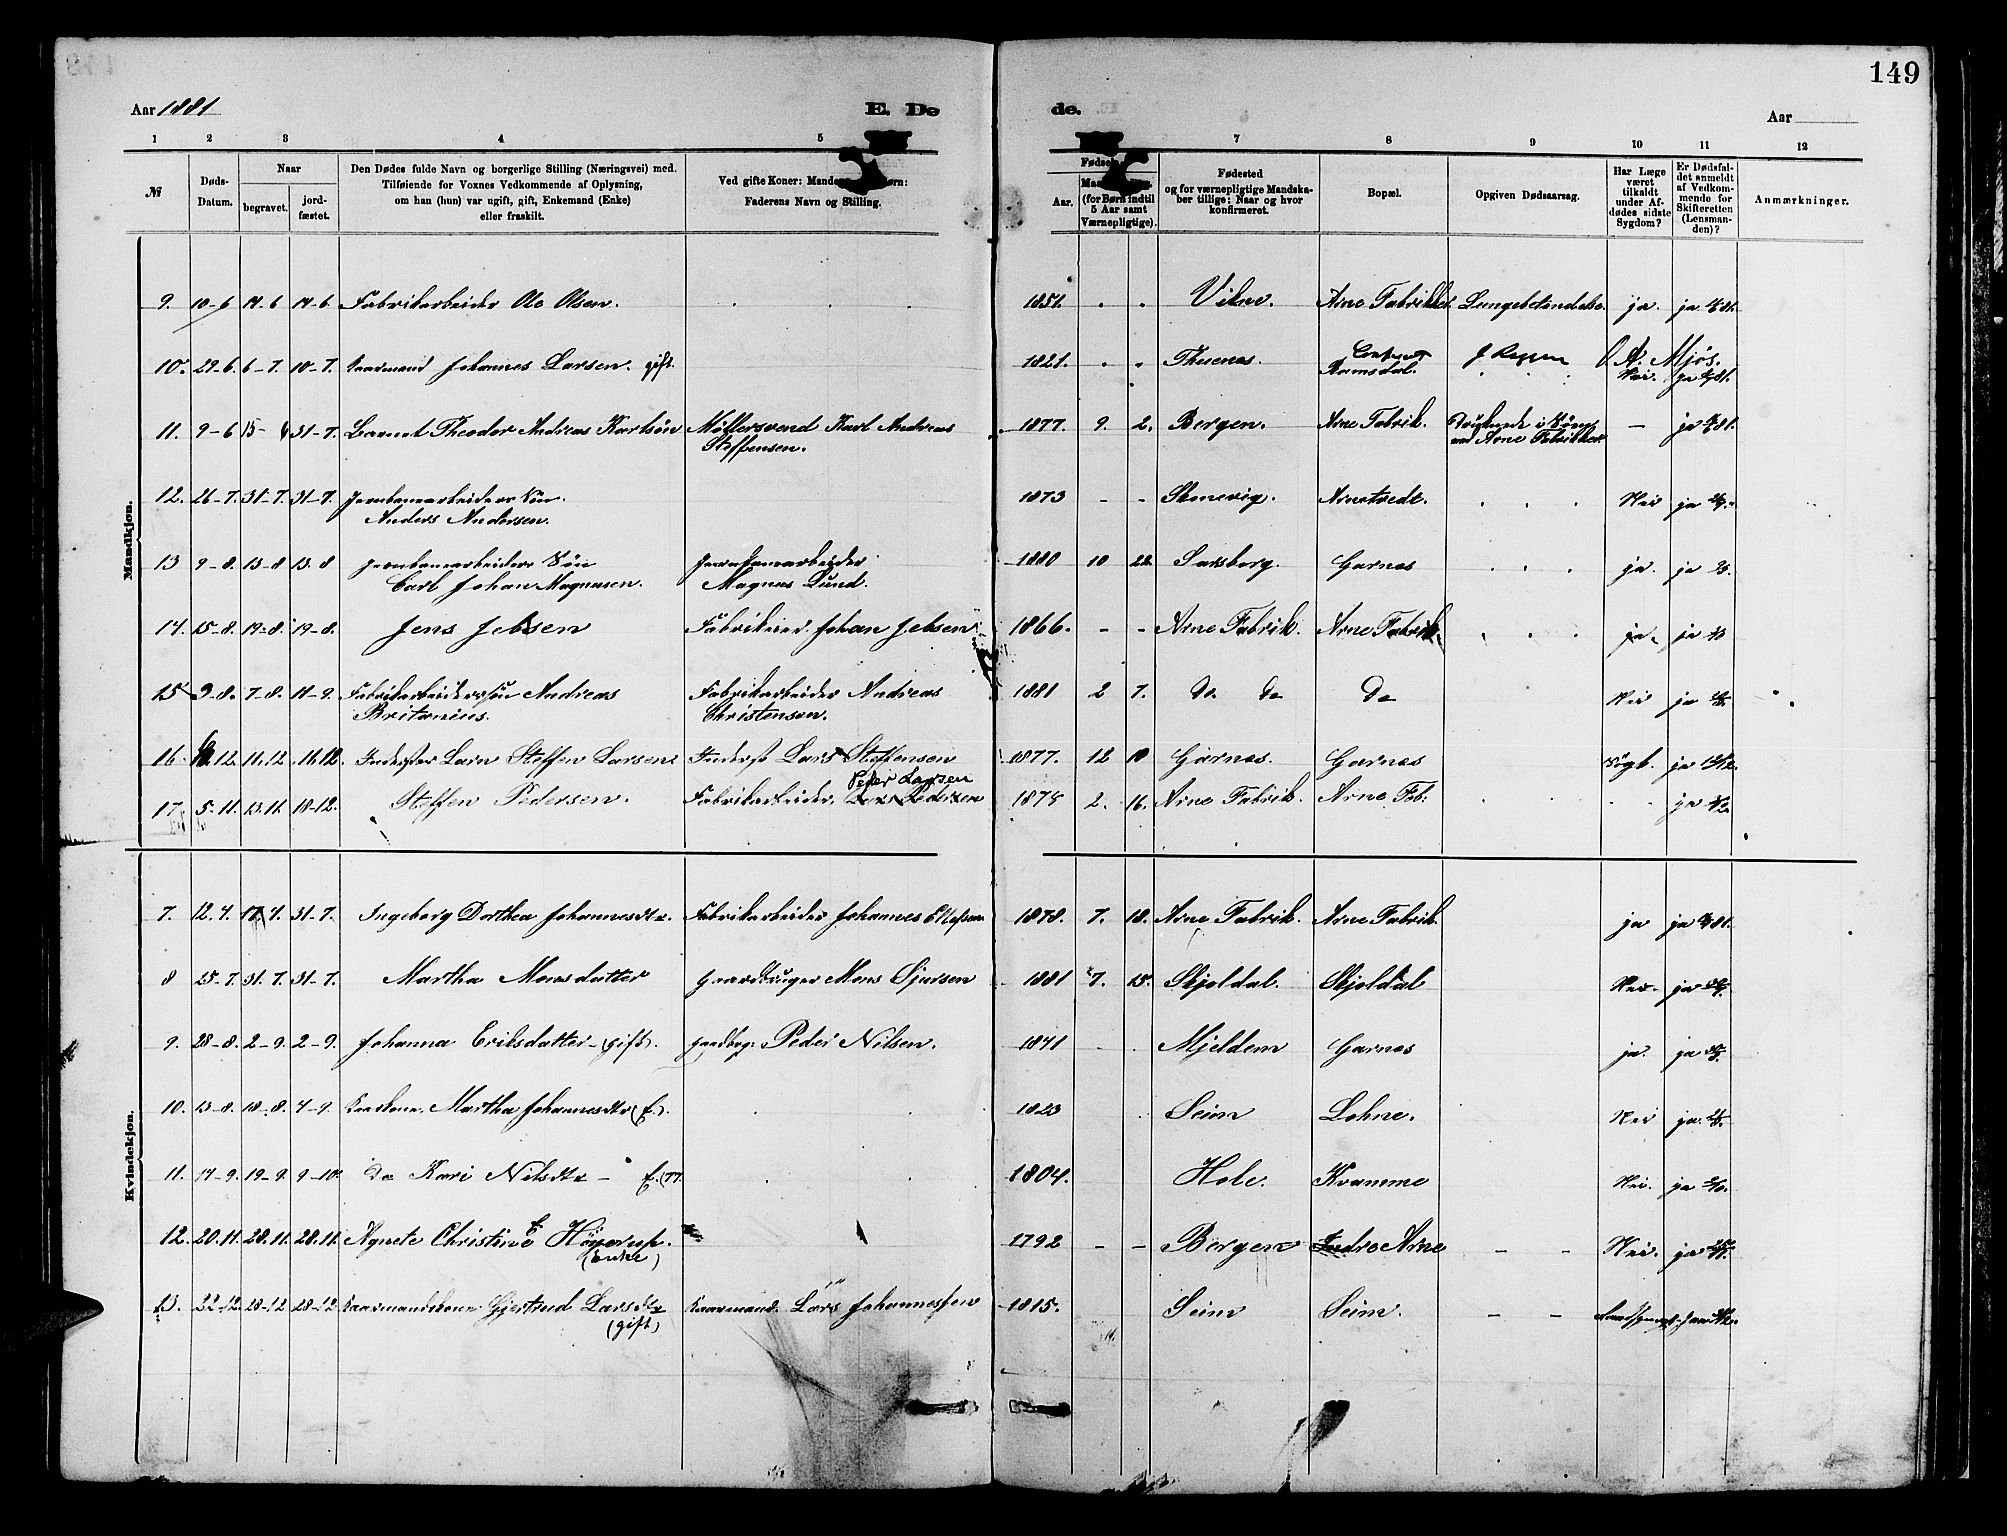 149
Aar 1881
E. Døde.
Aar
1 2 3 4 5 7 8 9 10 11 12
№
Døds-Datum.
Naar
begravet.
jordfæstet.
Den Dødes fulde Navn og borgerlige Stilling (Næringsvei) med.
Tilføiende for Voxnes Vedkommende af Oplysning,
om han (hun) var ugift, gift, Enkemand (Enke)
eller fraskilt.
Ved gifte Koner:
Faderens Navn og Stilling.
Aar.
(for Børn indtil
5 Aar samt
Værnepligtige).
Fødested
og for værnepligtige Mandska-
ber tillige: Naar og hvor
konfirmeret.
Bopæl.
Opgiven Dødsaarsag.
Har Læge
været
tilkaldt
under Af-
dødes sidste
Sygdom?
Er Dødsfal-
det anmeldt
af Vedkom-
mende for
Skifteretten
(Lensman-
den)?
Anmærkninger.
Mandkjøn.
9. 10-6 14-6 14-6. Fabrikarbeider Ole Olsen. 1851. Arne Fabrikker. Lungebetændelse. ja. ja
10. 29-6. 6-7. 10-7. Kaarmand Johannes Larsen. gift. 1821. Thuenes. Ramsdal. A. Mjøs.
11. 9-6 31-7. Barnet Theodor Andreas Karlsøn Møllersvend Karl Andreas 1877. 9. 2. Bergen. Arne Fabrik. Druknede i — ja
Steffensen. ved Arne Fabrikker
12. 26-7. 31-7. 31-7. Jernbanearbeiders Søn. 1873 - - Arnetvedt. Nei ja
Anders Andersen.
13 9-8. 13-8 13.8 jernbanearbeiders Søn jernbanearbeider 1880 10 22. Sarsborg. Garnes ja. ja
Carl Johan Magnusen. Magnus Lund.
14. 15-8. 19-8. 19-8. Jens Jebsen Fabrikeier. Johan Jebsen 1866. - - Arne Fabrik. Arne Fabrik. ja. ja
15 3-8. 7-8. 11-9. Fabrikarbeiderssøn Andreas Fabrikarbeider Andreas 1881 2 7. do do do Nei ja
Britanius. Christensen.
16 12. 11.12 11.12. Inderster Barn Steffen Larsen Inderst Lars Steffensen 1877. 12 10 Garnes. Garnes ja
Peder Larsen
17. 5-11. 13.11. 18-12. Steffen Pedersen. Fabrikarbeider. 2. 16. Arne Fabrik. Arne Fab: ja
Kvindekjøn.
7. 31-7. Ingeborg Dorthea Johannesdtr. Fabrikarbeider Johannes 1878. 7. 18. Arne Fabrik. Arne Fabrik. ja ja
8 25-7. 31.7. 31-7. Martha Monsdatter Gaardbruger Mons Sjursen 1881 7. 15. Skjoldal. Skjoldal Nei. ja
9. 28-8. 2-9. 2-9. Johanna Eriksdatter - (gift). gaardbrg: Peder Nilsen. 1841 Mjeldem Garnes ja. ja
10. 13-8. 18-8. 4-9. Kaarkone. Martha Johannesdtr (E). 1823 Seim Lohne. Nei ja.
11. 14-9. 19-9. 9-10. do Kari Nilsdtr - E. (77. 1804. Hole. Kvamme Nei. ja
12. 20.11. 28.11. 28.11. Agnete Christine Høyerup. 1792 - - Bergen Indre Arne - - Nei. ja
(Enke)
13. 22-12. 28-12 28-12 Kaarmandskone Gjertrud Larsdtr Kaarmand. Lars Johannessen 1815. Seim Seim. - -
(gift)